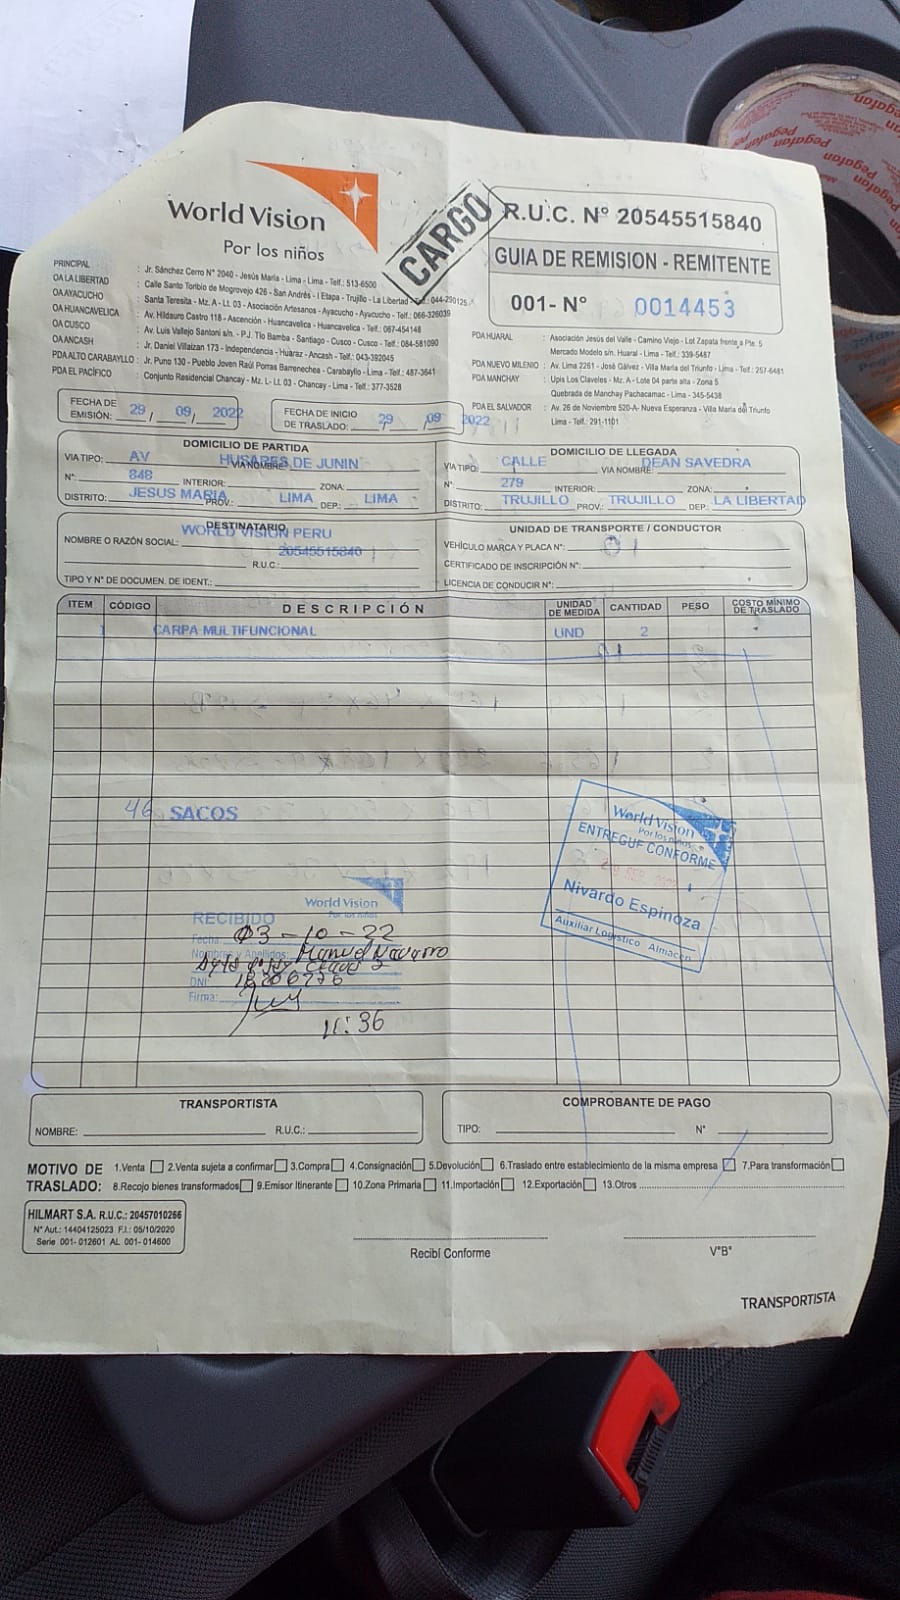 World Vision
Por los niños
CARGO
R.U.C. Nº 20545515840
GUIA DE REMISION - REMITENTE
001- Nº 0014453
PRINCIPAL : Jr. Sánchez Cerro N° 2040 - Jesús María - Lima - Lima - Telf.: 513-6500
OA LA LIBERTAD : Calle Santo Toribio de Mogrovejo 426 - San Andrés - I Etapa - Trujillo - La Libertad - Telf.: 044-290125
OA AYACUCHO : Santa Teresita - Mz. A - Lt. 03 - Asociación Artesanos - Ayacucho - Ayacucho - Telf.: 066-326039
OA HUANCAVELICA : Av. Hildauro Castro 118 - Ascención - Huancavelica - Huancavelica - Telf.: 067-454148
OA CUSCO : Av. Luis Vallejo Santoni s/n. - P.J. Tío Bamba - Santiago - Cusco - Cusco - Telf.: 084-581090
OA ANCASH : Jr. Daniel Villaizan 173 - Independencia - Huaraz - Ancash - Telf.: 043-392045
PDA ALTO CARABAYLLO : Jr. Puno 130 - Pueblo Joven Raúl Porras Barrenechea - Carabayllo - Lima - Telf.: 487-3641
PDA EL PACÍFICO : Conjunto Residencial Chancay - Mz. L- Lt. 03 - Chancay - Lima - Telf.: 377-3528
PDA HUARAL : Asociación Jesús del Valle - Camino Viejo - Lot Zapata frente a Pte. 5
Mercado Modelo s/n. Huaral - Lima - Telf.: 339-5487
PDA NUEVO MILENIO : Av. Lima 2261 - José Gálvez - Villa María del Triunfo - Lima - Telf.: 257-6481
PDA MANCHAY : Upis Los Claveles - Mz. A - Lote 04 parte alta - Zona 5
Quebrada de Manchay Pachacamac - Lima - 345-5438
PDA EL SALVADOR : Av. 26 de Noviembre 520-A- Nueva Esperanza - Villa María del Triunfo
Lima - Telf.: 291-1101
FECHA DE EMISIÓN: 29 / 09 / 2022
FECHA DE INICIO DE TRASLADO: 29 / 09 / 2022
DOMICILIO DE PARTIDA
VIA TIPO: AV VIA NOMBRE: HUSARES DE JUNIN
N°: 848 INTERIOR: ZONA:
DISTRITO: JESUS MARIA PROV.: LIMA DEP.: LIMA
DOMICILIO DE LLEGADA
VIA TIPO: CALLE VIA NOMBRE: DEAN SAVEDRA
N°: 279 INTERIOR: ZONA:
DISTRITO: TRUJILLO PROV.: TRUJILLO DEP.: LA LIBERTAD
DESTINATARIO
NOMBRE O RAZÓN SOCIAL: WORLD VISION PERU
R.U.C.: 20545515840
TIPO Y N° DE DOCUMEN. DE IDENT.:
UNIDAD DE TRANSPORTE / CONDUCTOR
VEHÍCULO MARCA Y PLACA N°:
CERTIFICADO DE INSCRIPCIÓN N°:
LICENCIA DE CONDUCIR N°:
ITEM CÓDIGO DESCRIPCIÓN UNIDAD DE MEDIDA CANTIDAD PESO COSTO MÍNIMO DE TRASLADO
1 CARPA MULTIFUNCIONAL UND 2
46 SACOS
World Vision
Por los niños
ENTREGUE CONFORME
Nivardo Espinoza
Auxiliar Logístico Almacen
World Vision
Por los niños
RECIBIDO
Fecha: 03-10-22
Nombres y Apellidos: Manuel Navarro
DNI:
Firma:
11:36
TRANSPORTISTA
NOMBRE: R.U.C.:
COMPROBANTE DE PAGO
TIPO: N°
MOTIVO DE TRASLADO: 1.Venta 2.Venta sujeta a confirmar 3.Compra 4.Consignación 5.Devolución 6.Traslado entre establecimiento de la misma empresa 7.Para transformación
8.Recojo bienes transformados 9.Emisor Itinerante 10.Zona Primaria 11.Importación 12.Exportación 13.Otros
HILMART S.A. R.U.C.: 20457010266
N° Aut.: 14404125023 F.I.: 05/10/2020
Serie 001- 012601 AL 001- 014600
Recibí Conforme
V°B°
TRANSPORTISTA
Pegafan